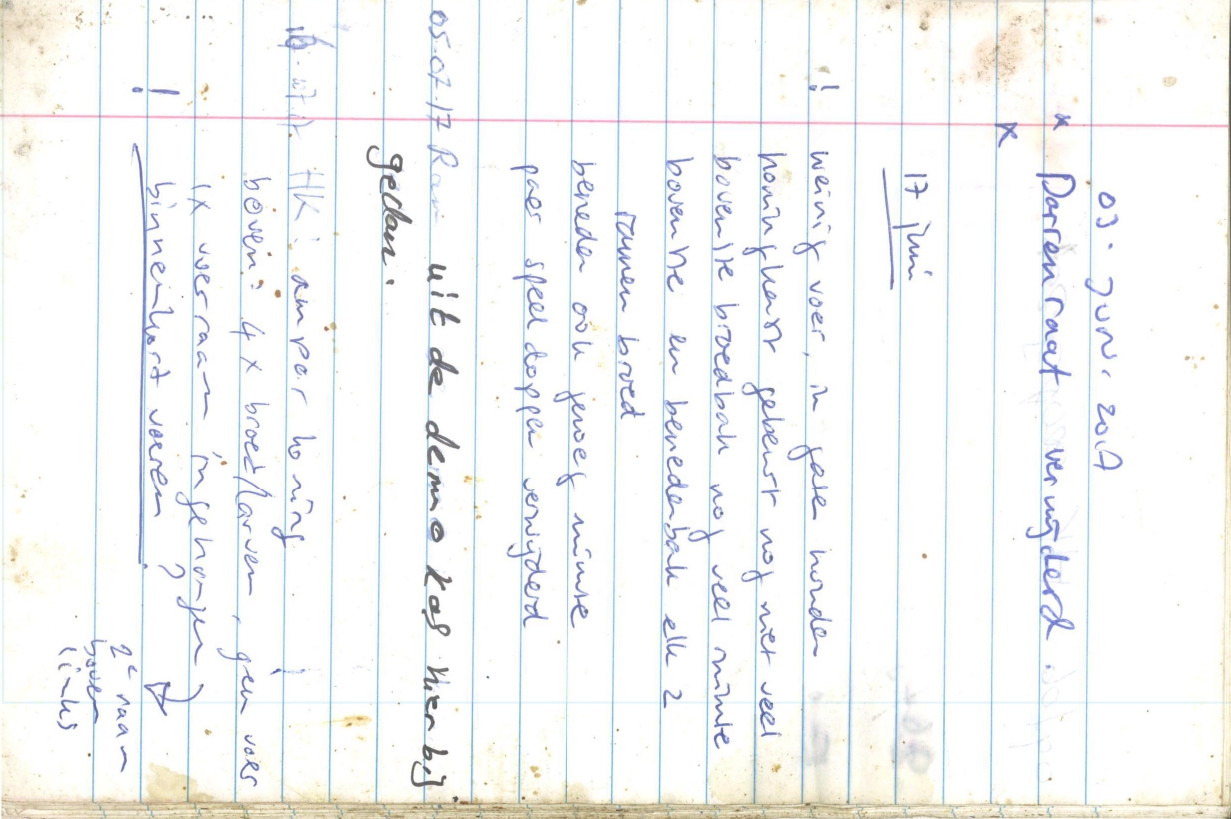 03. Juni 2017
x Darrenraat verwijderd
x
17 juni
! weinig voer, in gate houden
honingkamer gebeurt nog niet veel
bovenste broedbak nog veel ruimte
bovenste en benedenbak elk 2
ramen broed
beneden ook genoeg ruimte
paar speeldoppen verwijderd
05.07.17 Raam uit de demo kas hier bij
gedaan.
16.07.17 HK: amper honing
boven: 4 x broed/larven, geen voer
1x voerraam ingehangen
! binnenkort voeren ?
2e raam
boven
links